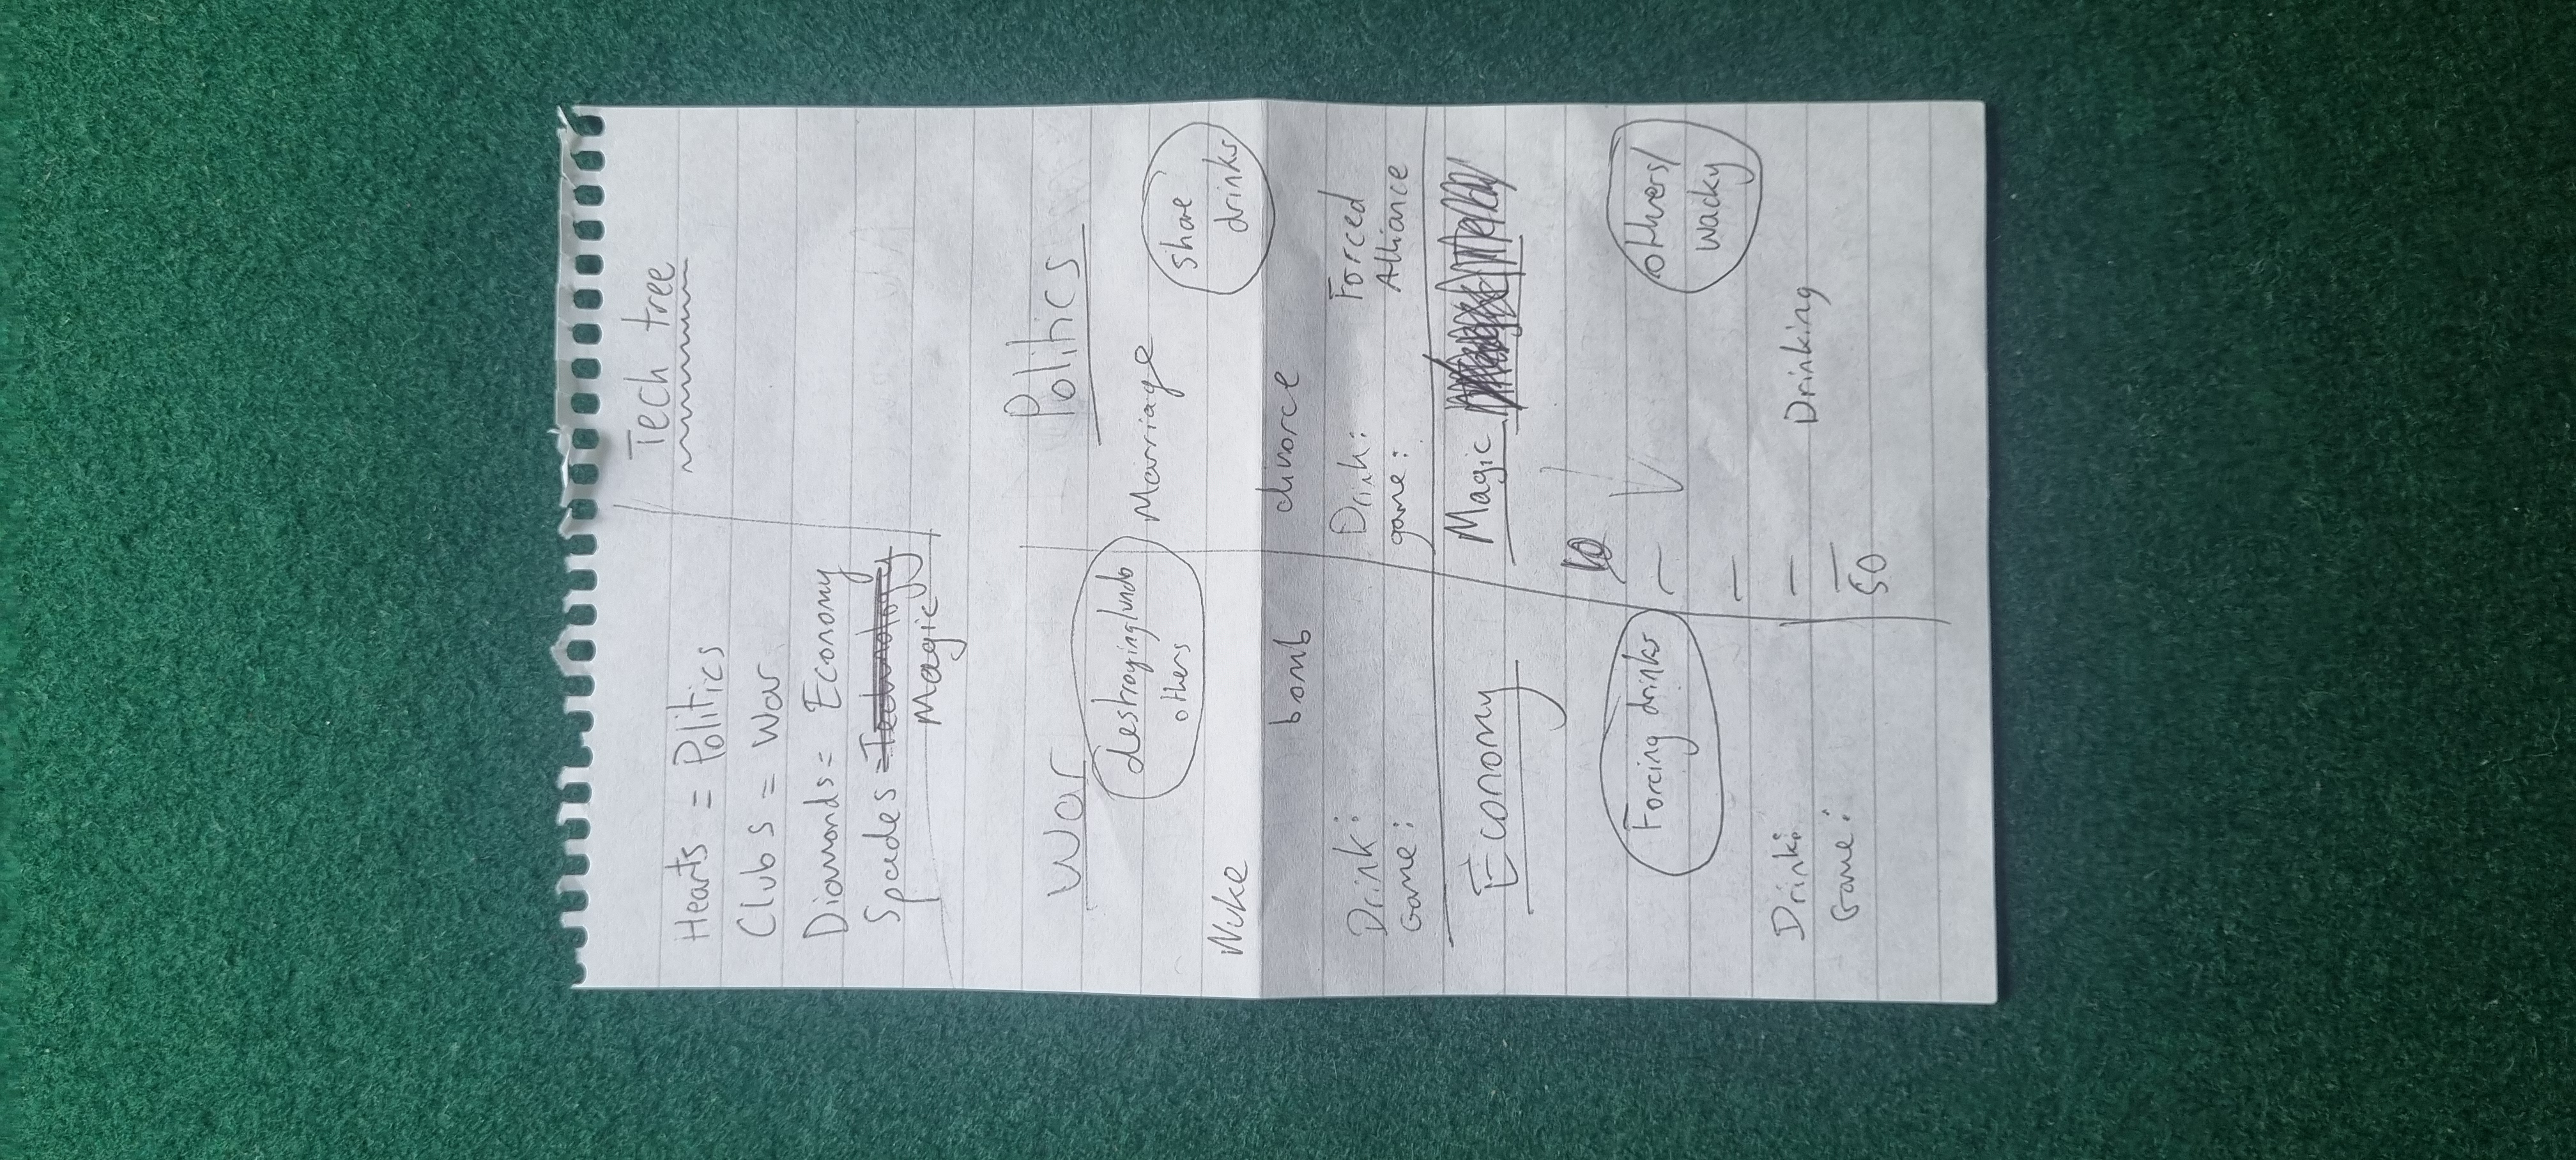 Tech tree
Hearts = Politics
Clubs = War
Diamonds = Economy
Spades = Technology
Magic
War
Politics
destroying/undo
others
Marriage
share
drinks
Nuke
bomb
divorce
Drink:
Game:
Drink:
game:
Forced
Alliance
Economy
Magic
Forcing drinks
others/
wacky
Drink:
Game:
Drinking
50